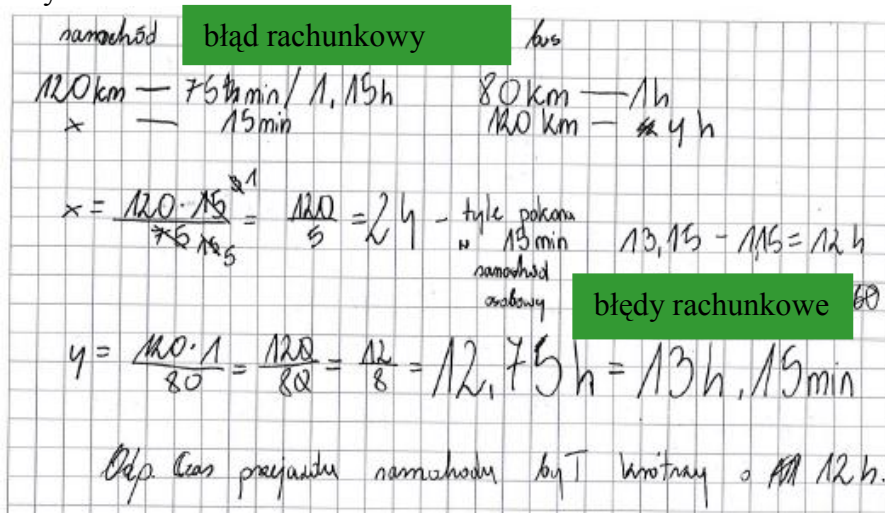 samochód błąd rachunkowy bus
120 km — 75 min / 1,15h 80 km — 1h
x — 15 min 120 km — y h
x = 120 · 15 / 75 = 120 / 5 = 24 - tyle pokona
w 15 min 13,15 - 1,15 = 12 h
samochód
osobowy błędy rachunkowe 60
y = 120 · 1 / 80 = 120 / 80 = 12 / 8 = 12,75 h = 13 h, 15 min
Odp. Czas przejazdu samochodu był krótszy o 12 h.